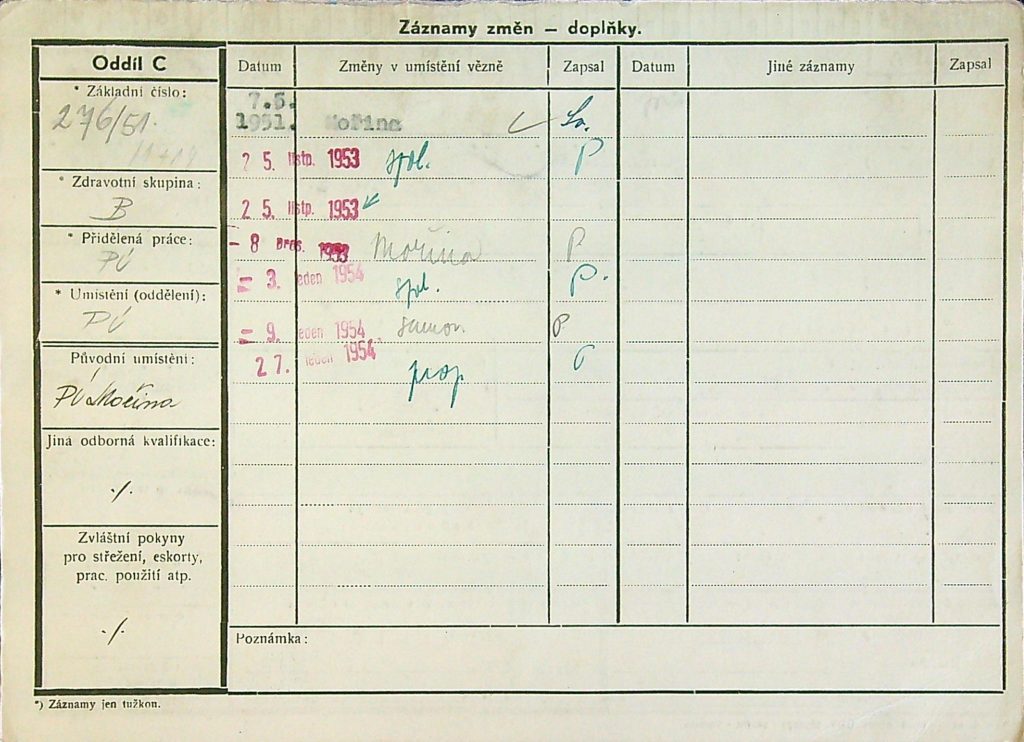 Záznamy změn — doplňky.
Oddíl C
* Základní číslo:
276/51.
* Zdravotní skupina:
B
* Přidělená práce:
PÚ
* Umístění (oddělení):
PÚ
Původní umístění:
PÚ Mořina
Jiná odborná kvalifikace:
./.
Zvláštní pokyny
pro střežení, eskorty,
prac. použití atp.
./.
Datum Změny v umístění vězně Zapsal Datum Jiné záznamy Zapsal
7.5.
1951. Mořina
25. listp. 1953 spl. P
25. listp. 1953
- 8 pros. 1953 Mořina P
= 3. leden 1954 spl. P.
= 9. leden 1954 samov. P.
27. leden 1954 prop
Poznámka:
*) Záznamy jen tužkou.